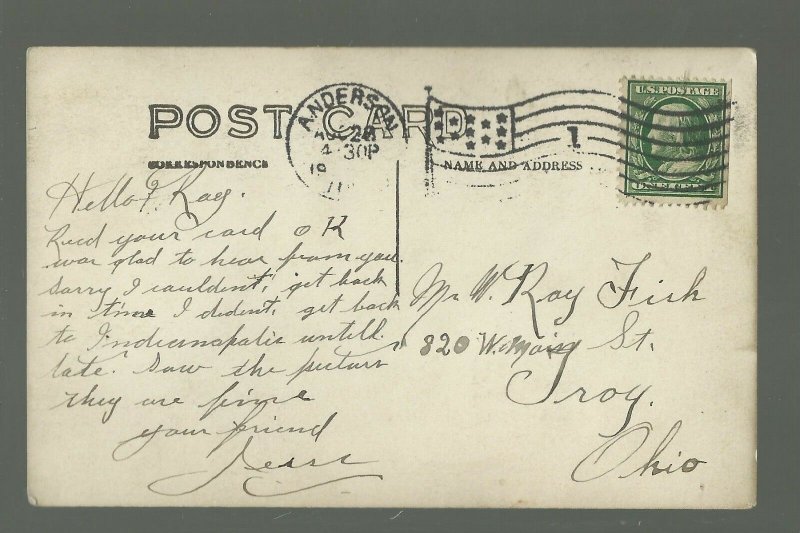 POST CARD
CORRESPONDENCE
NAME AND ADDRESS
ANDERSON
AUG 28
4-30P
19
11
1
U.S. POSTAGE
Hello Roy.
Recd your card OK
was glad to hear from you.
Sorry I couldent, get back
in time I dident, get back
to Indianapolis untill
late. Saw the picturs
they are fine
your friend
Jesse
Mr W. Roy Fish
820 W. Main St.
Troy.
Ohio